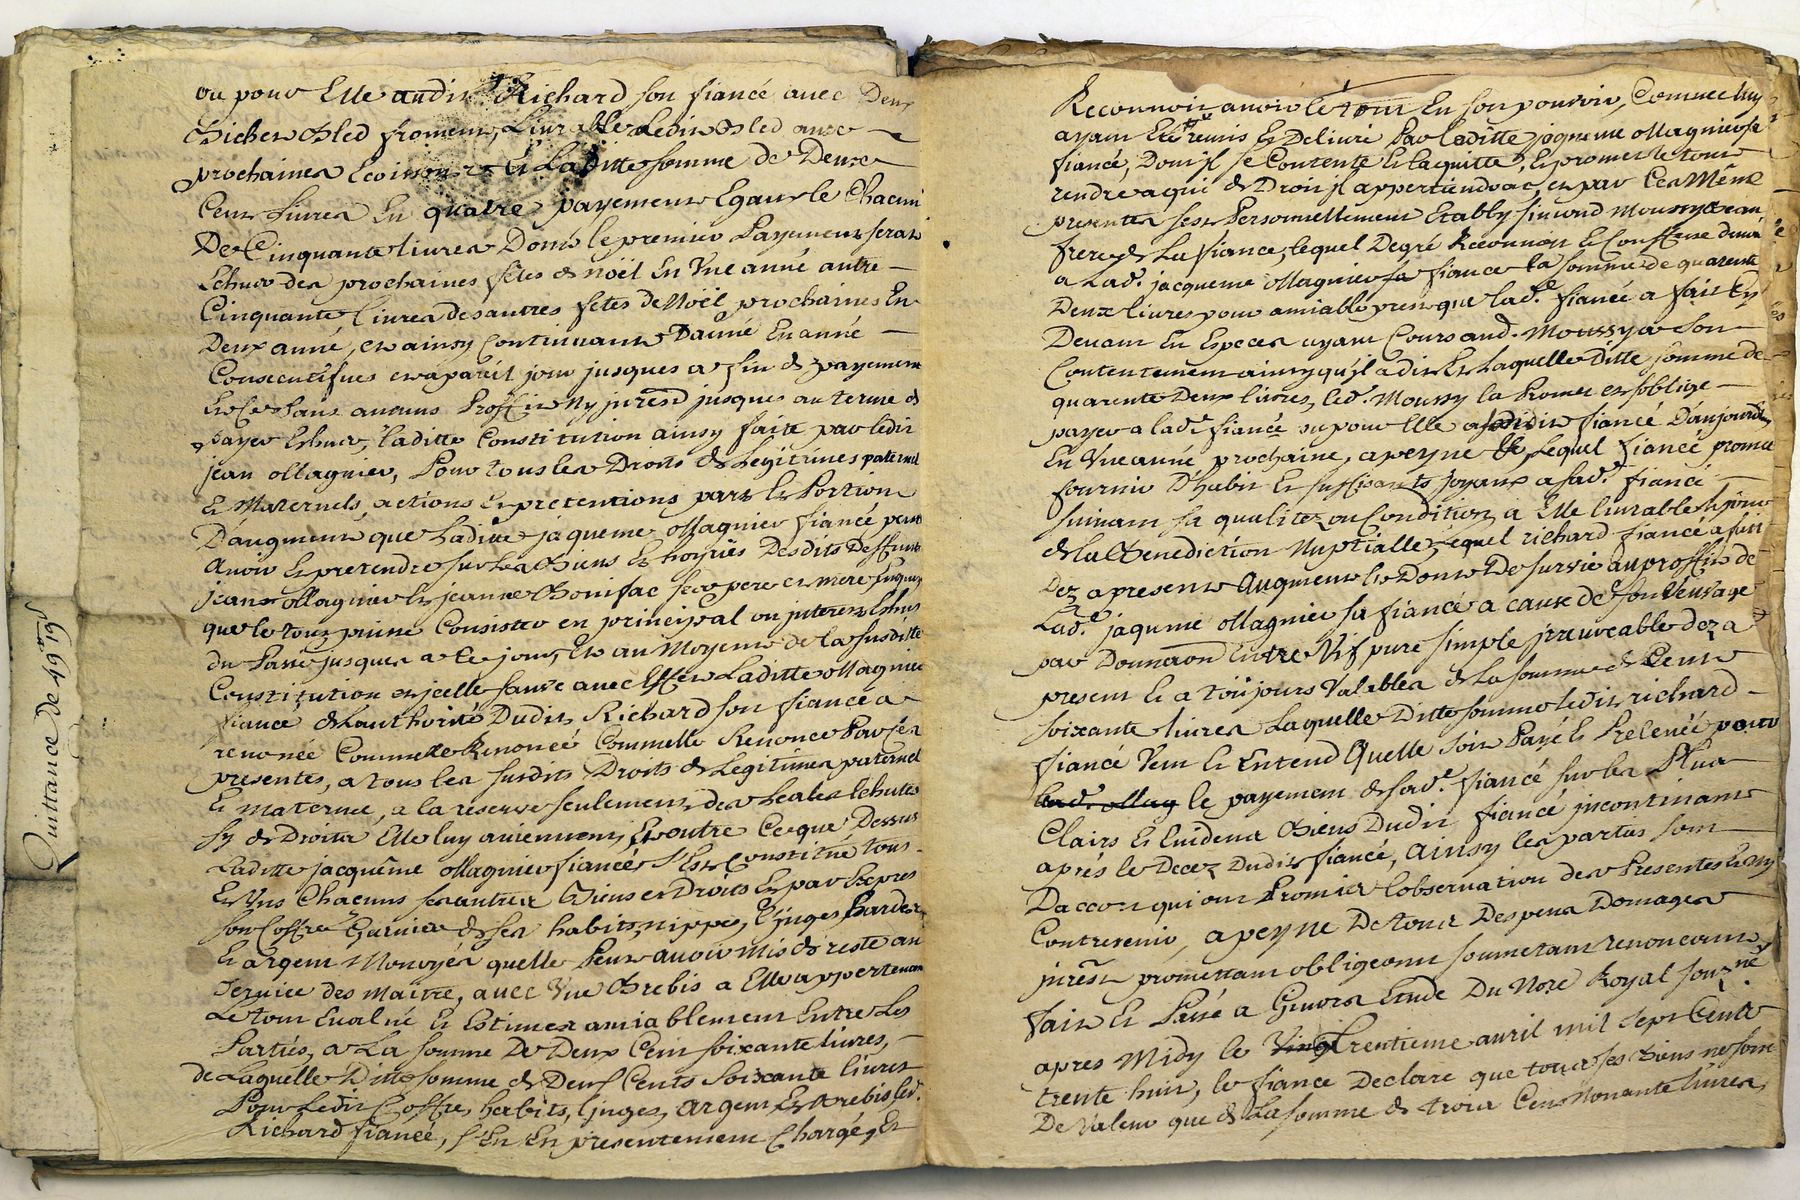 Quittance de 49ᵗᵗ 19ˢ
ou pour Elle audit Richard son fiancé avec Deux
Bichets Bled froment, Livrable Ledit Bled aux
prochaines Ecoissons et Laditte somme de Deux
Cent Livres En quatre payements Egaux le Chacun
De Cinquante livres Dont le premier Payement serat
Echuer des prochaines fetes de nöel En Vne anné autre
Cinquante Livres des autres fetes de Nöel prochaines En
Deux anné, et ainsy Continuant D'anné En anné
Consecutifves et a pareil jour jusques a fin de payement
Et Ce sans aucuns Proffit Ny jnterest jusques au terme de
payer Eschuer, laditte Constitution ainsy faitte par ledit
jean Magnier, Pour tous les Droits de Legitimes paternel
Et Maternels, actions et pretentions part et Portion
D'augment que Laditte jaqueme Magnier fiancé peut
Avoir et pretendre sur Les Biens et hoyries Desdits Deffunts
jean Magnier et jeanne Bonifac ses pere et mere
que le tout puisse Consister en principal ou jnterest Echus
du Passé jusques a Ce jour, Et au Moyens de la susditte
Constitution et jcelle sauve avec Effet Laditte Magnier
fiancé de Lauthorité Dudit Richard son fiancé a
renoncé Comme Renoncé Commelle Renonce Par ses
presentes, a tous les susdits Droits de Legitimes paternel
Et maternel, a la reserve seulement des Echutes
sy de Droits Elle luy aviennent, Et outre Ce que Dessus
Laditte jacqueme Magnier fiancée S'Est Constitué tous
Et Vns Chacuns ses autres Biens et Droits Et par Expres
son Coffre Garnier de ses habits, nippes, Linges hardes
Et argent Monoyés quelle Peut avoir mis de reste au
service des maitre, avec Vne Brebis a Elle appertenant
Le tout Evalué Et Estimer amiablement Entre Les
Parties, a La somme De Deux Cent soixante livres,
de Laquelle Ditte somme de Deux Cents Soixante livres
Pour Ledit Coffre, habits, linges, argent Et Brebis, led.
Richard fiancé, s'En En presentement Chargé, Et
Reconnoit avoir le tout En son pouvoir, Comme luy
ayant Eté remis Et Delivré Par laditte jaqueme Magnier sa
fiancé, Dont jl se Contente Et la quitte, Et promet le tout
rendre a qui de Droit jl appertiendrat, et par Ces Même
presentes sest Personnellement Etably
frere de La fiancé, lequel De gré Reconnoit Et Confesse devoir
a Lad.ᵉ jacqueme Magnier sa fiancé la somme de quarente
Deux livres pour amiable prest que lad.ᵉ fiancé a fait Cy
Devant En Especes ayant Cours aud. Moussy a son
Contentement ainsy qu'jl a dit Et Laquelle Ditte somme de
quarente Deux livres, led. Moussy la Promet et soblige
payer a lad.ᵉ fiancé ou pour Elle audit fiancé D'aujourdhuy
En Vne anné prochaine, a peyne &c, Lequel fiancé promet
fournir D'habit Et suffisants joyaux a sad.ᵉ fiancé
suivant sa qualitez ou Condition, a Elle livrable le jour
de la Benediction Nuptialle, lequel richard fiancé a fait
Dez a present augment Et Dont De survie au proffit de
Lad.ᵉ jaqume Magnier sa fiancé a cause de son Veuvage
par Donnaon Entre Vif pure simple jrrevocable dez a
present Et a toüjours Valables de La somme de Cent
soixante livres Laquelle Ditte somme ledit richard
fiancé Veut Et Entend Quelle soit Payé Et Prelevéé pour
lad.ᵉ Mag le payement de sad.ᵉ fiancé sur les Plus
Clairs Et Evidents Biens Dudit fiancé jncontinant
aprés le Decez Dudit fiancé, ainsy les parties sont
D'accort qui ont Promis Lobservation des Presentes
Contrevenir, a peyne De tous Despens Domages
jnrest promettant obligeant soumetant renonceant
fait Et Passé a Givors Etude Du Nore Royal souz.né
apres Midy le Vingt trentieme avril mil sept Cent
trente huit, le fiancé Declare que tous ses Biens ne sont
De Valeur que de La somme de trois Cent Nonante livres,